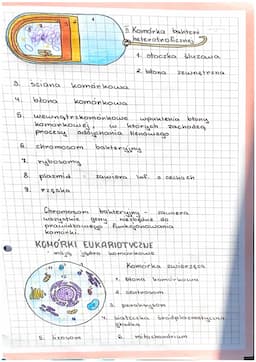 Komórka bakterii
heterotroficznej
1. otoczka śluzowa
2. błona zewnętrzna
3. ściana komórkowa
4. błona komórkowa
5. wewnątrzkomórkowe wpuklenia błony
komórkowej, w których zachodzą
procesy oddychania tlenowego
6. chromosom bakteryjny
7. rybosomy
8. plazmid - zawiera inf. o cechach
9. rzęska
Chromosom bakteryjny - zawiera
wszystkie geny niezbędne do
prawidłowego funkcjonowania
komórki.
KOMÓRKI EUKARIOTYCZNE
- mają jądro komórkowe
Komórka zwierzęca
1. błona komórkowa
2. centrosom
3. peroksysom
4. siateczka śródplazmatyczna
gładka
5. lizosom 6. mitochondrium